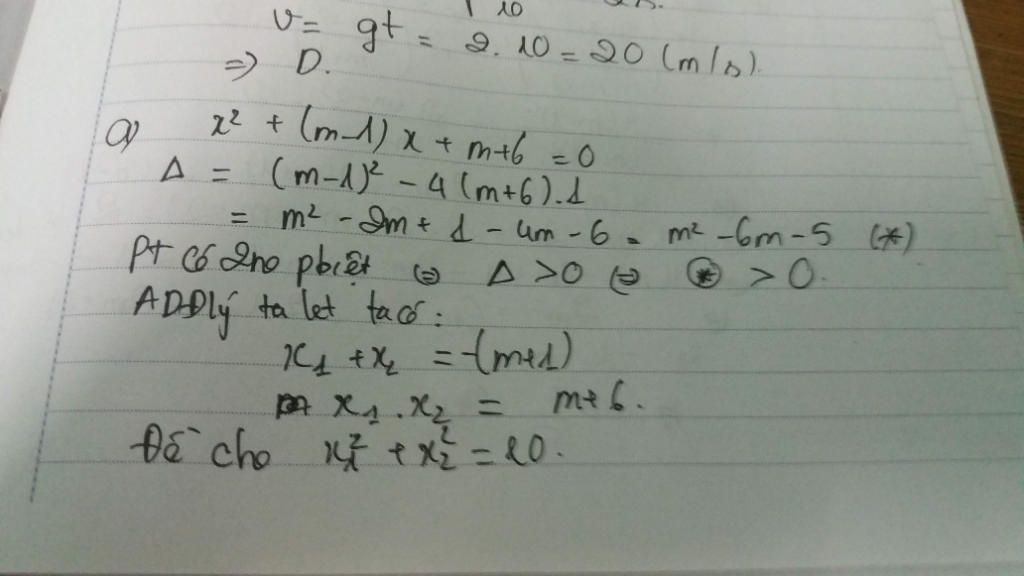 10
v = gt = 2.10 = 20 (m/s).
=> D.
a) x² + (m-1) x + m+6 = 0
Δ = (m-1)² - 4(m+6).1
= m² - 2m + 1 - 4m - 6 = m² - 6m - 5 (*)
Pt có 2no pbiệt ⇔ Δ > 0 ⇔ (*) > 0.
ADĐlý ta let ta có:
x₁ + x₂ = -(m+1)
x₁ . x₂ = m+6.
Để cho x₁² + x₂² = 10.